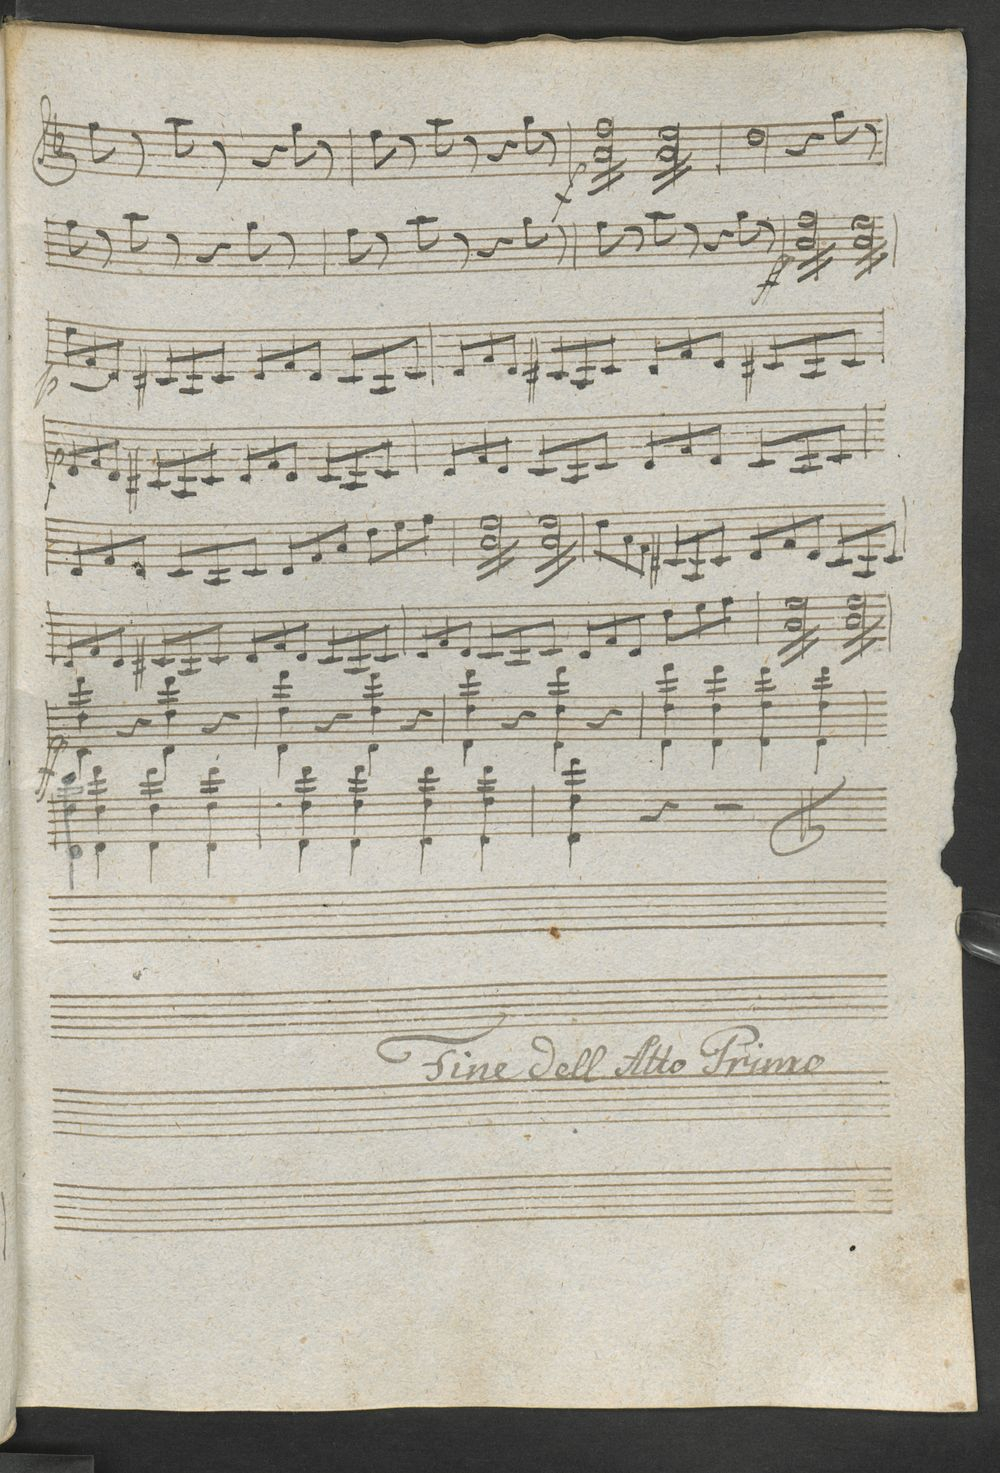 f
ff
p
p
ff
Fine dell Atto Primo